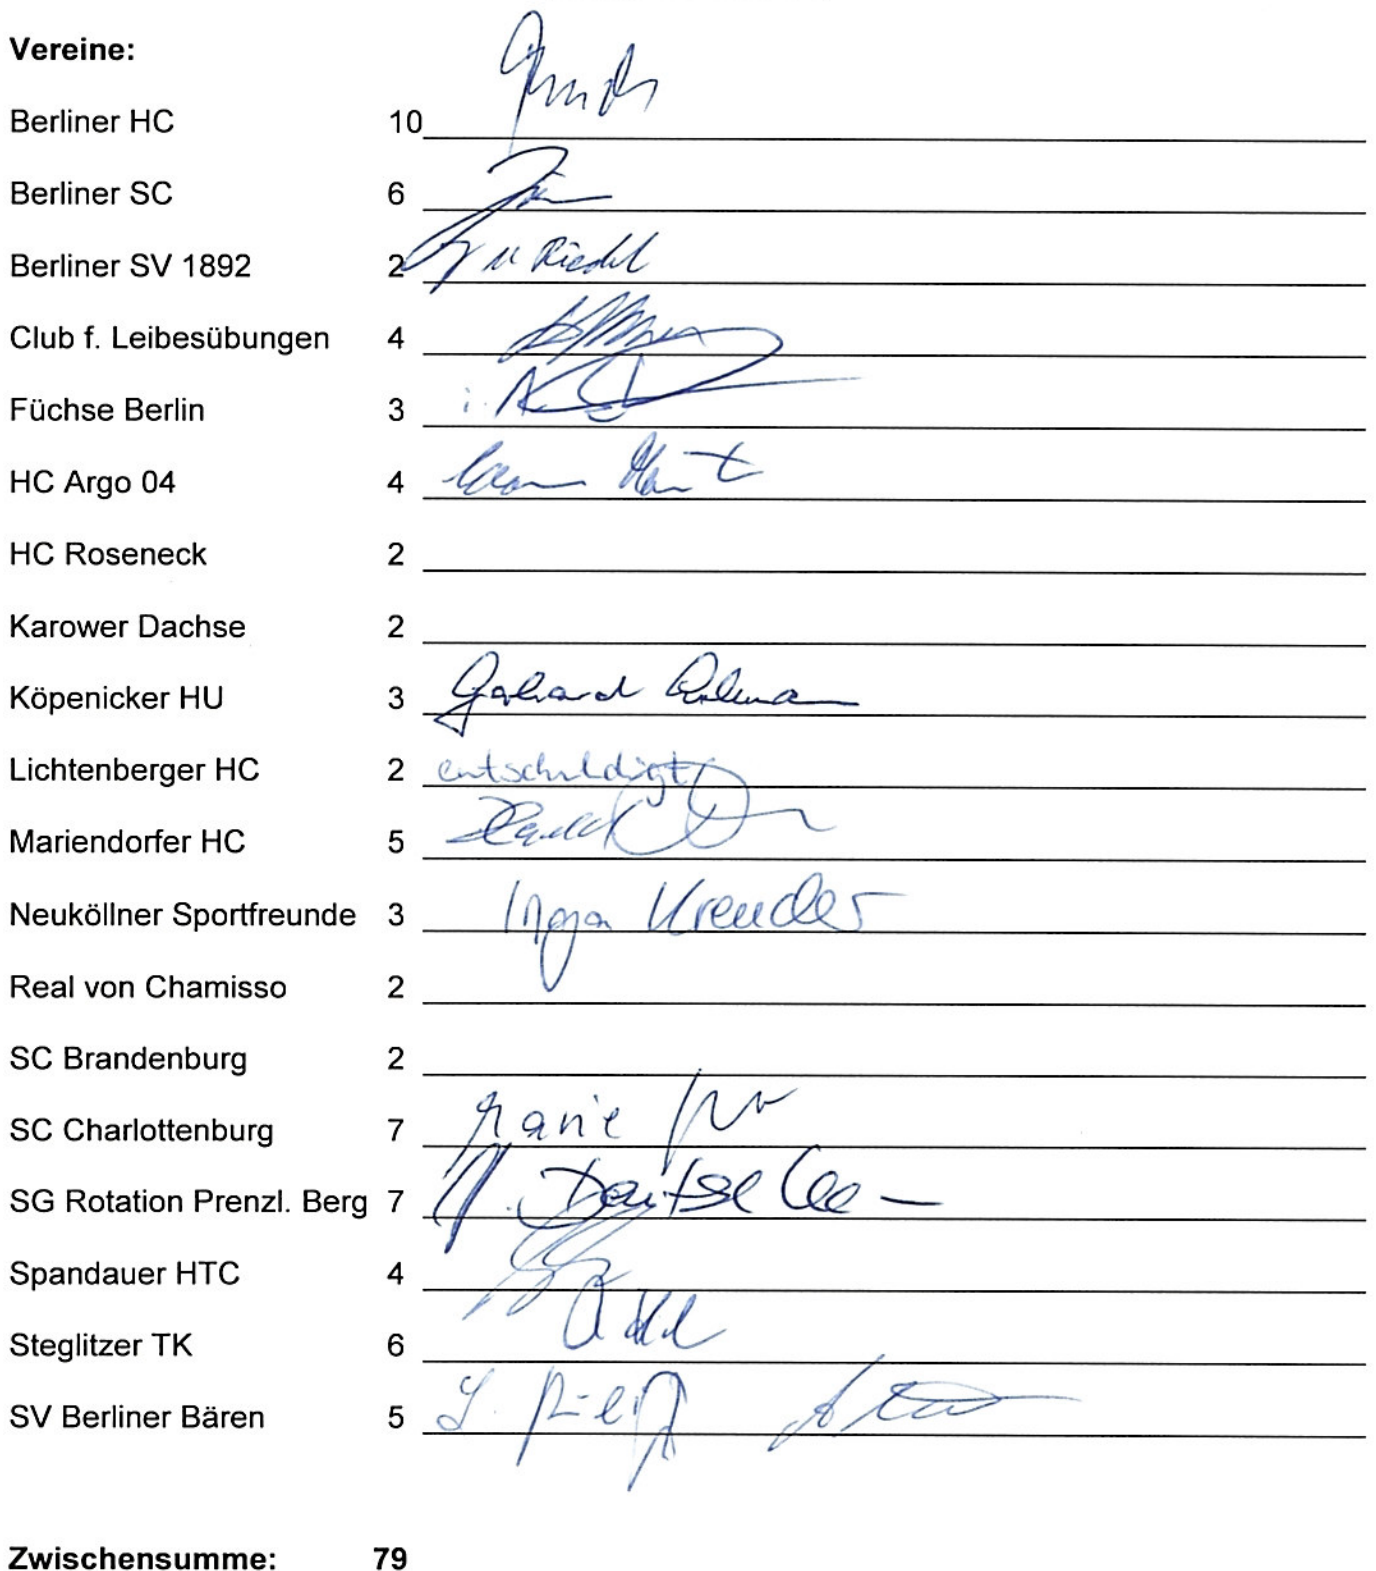 Vereine:
Berliner HC 10
Berliner SC 6
Berliner SV 1892 2 Riedel
Club f. Leibesübungen 4
Füchse Berlin 3
HC Argo 04 4
HC Roseneck 2
Karower Dachse 2
Köpenicker HU 3
Lichtenberger HC 2 entschuldigt
Mariendorfer HC 5
Neuköllner Sportfreunde 3 Inga Kreuder
Real von Chamisso 2
SC Brandenburg 2
SC Charlottenburg 7
SG Rotation Prenzl. Berg 7
Spandauer HTC 4
Steglitzer TK 6
SV Berliner Bären 5
Zwischensumme: 79